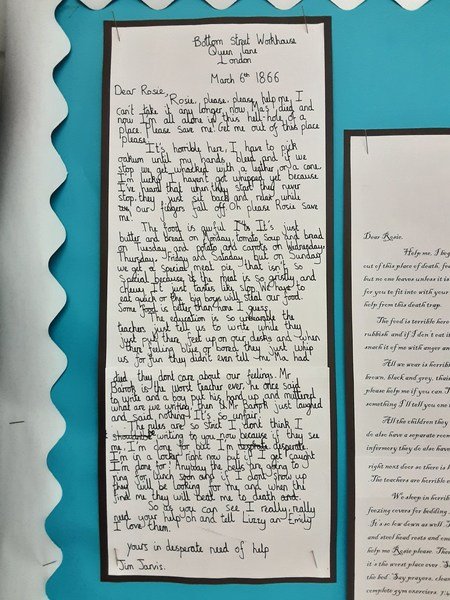 Bottom Street Workhouse
Queen Lane
London
March 6th 1866
Dear Rosie,
Rosie, please, please, help me, I
can't take it any longer now Ma's died and
now I'm all alone in this hell-hole of a
place. Please save me. Get me out of this place
please.
It's horrible here, I have to pick
oakum until my hands bleed and if we
stop we get whacked with a leather or a cane.
I'm lucky I haven't got whipped yet because
I've heard that when they start they never
stop, they just sit back and relax while
our fingers fall off. Oh please Rosie save
me.
The food is awful. It's just
butter and bread on Monday, tomato soup and bread
on Tuesday and potato and carrots on Wednesday,
Thursday, Friday and Saturday but on Sunday
we get a special meat pie that isn't so
special because the meat is so gristly and
chewy. It just tastes like slop. We have to
eat quick or the big boys will steal our food.
Some food is better than none I guess.
The education is so unbearable the
teachers just tell us to write while they
just put there feet up on our desks and when
their feeling blue or bored they just whip
us for fun they didn't even tell me Ma had
died they dont care about our feelings. Mr
Barrok is the worst teacher ever he once said
to write and a boy put his hand up and muttered
what are we writing then Mr Barrok just laughed
and said nothing! It's so unfair.
The rules are so strict I dont think I
should be writing to you now because if they see
me, I'm done for but I'm desperate.
I'm in a locker right now but if I get caught
I'm done for! Anyday the bells are going to
ring for lunch soon and if I dont show up
they will be looking for me and when they
find me they will beat me to death and.
So as you can see I really, really
need your help oh and tell Lizzy an Emily
I love them.
yours in desperate need of help
Jim Jarvis.
Dear Rosie,
Help me, I beg
out of this place of death, fo
but no one leaves unless it is
for you to fit into with your
help from this death trap.
The food is terrible here
rubbish and if I don't eat it
smack it of me with anger an
All we wear is horribl
brown, black and grey, tha
please help me if you can. T
something I'll tell you one
All the children they
do also have a separate room
infirmary they do also have
right next door so there is l
The teachers are horrible a
We sleep in horrible
freezing covers for bedding
It's so low down as well. T
and steel head rests and en
help me Rosie please. Thou
it's the worst place ever. S
the bed. Say prayers, clean
complete gym exercises.